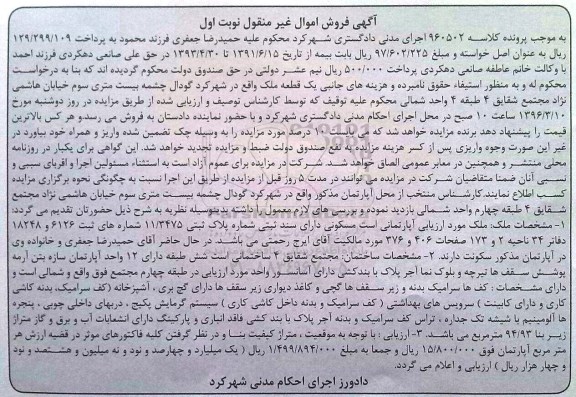 آگهی فروش اموال غیر منقول نوبت اول
به موجب پرونده کلاسه ۹۶۰۵۰۲ اجرای مدنی دادگستری شهرکرد محکوم علیه حمیدرضا جعفری فرزند محمود به پرداخت ۱۳۹/۲۹۹/۱۰۹
ریال به عنوان اصل خواسته و مبلغ ۹۷/۶۰۲/۲۲۵ ریال بابت بیمه از تاریخ ۱۳۹۱/۶/۱۵ تا ۱۳۹۳/۴/۳۰ در حق علی صانعی دهکردی فرزند احمد
با وکالت خانم عاطفه صانعی دهکردی پرداخت ۵۰۰/۰۰۰ ریال نیم عشر دولتی در حق صندوق دولت محکوم گردیده اند که بنا به درخواست
محکوم له و به منظور استیفاء حقوق نامبرده و هزینه های جانبی یک قطعه ملک واقع در شهرکرد گودال چشمه بیست متری سوم خیابان هاشمی
نژاد مجتمع شقایق ۴ طبقه ۴ واحد شمالی محکوم علیه توقیف که توسط کارشناس توصیف و ارزیابی شده از طریق مزایده در روز دوشنبه مورخ
۱۳۹۶/۳/۱۰ ساعت ۱۰ صبح در محل اجرای احکام مدنی دادگستری شهرکرد و با حضور نماینده دادستان به فروش می رسد و هر کس بالاترین
قیمت را پیشنهاد دهد برنده مزایده خواهد شد که باید ده درصد مورد مزایده را به وسیله چک تضمین شده واریز و همراه خود بیاورد در
غیر این صورت وجوه واریزی پس از کسر هزینه مزایده به نفع صندوق دولت ضبط و مزایده تجدید خواهد شد. این گواهی برای یکبار در روزنامه
محلی منتشر و همچنین در معابر عمومی الصاق خواهد شد. شرکت در مزایده برای عموم آزاد است به استثناء مسئولین اجرا و اقربای سببی و
نسبی آنان ضمنا متقاضیان شرکت در مزایده می توانند در مدت ۵ روز قبل از مزایده از طریق این اجرا نسبت به چگونگی نحوه برگزاری مزایده
کسب اطلاع نمایند.کارشناس منتخب از محل آپارتمان مذکور واقع در شهرکرد گودال چشمه بیست متری سوم خیابان هاشمی نژاد مجتمع
شقایق ۴ طبقه چهارم واحد شمالی بازدید نموده و بررسی های لازم معمول داشته بدینوسیله نظریه به شرح ذیل حضورتان تقدیم می گردد:
۱- مشخصات ملک: ملک مورد ارزیابی آپارتمانی است مسکونی دارای سند ثبتی شماره پلاک ثبتی ۱۱/۳۴۷۵ شماره های ثبت ۶۱۲۶ و ۱۸۲۴۸
دفاتر ۳۴ ناحیه ۲ و ۱۷۳ صفحات ۴۰۶ و ۳۷۶ مورد مالکیت آقای ایرج رحمتی می باشد. در حال حاضر آقای حمیدرضا جعفری و خانواده وی
در آپارتمان مذکور سکونت دارند. ۲- مشخصات ساختمان: مجتمع شقایق ۴ ساختمانی است شش طبقه دارای ۱۲ واحد آپارتمان سازه بتن آرمه
پوشش سقف ها تیرچه و بلوک نما آجر پلاک با بندکشی دارای آسانسور واحد مورد ارزیابی در طبقه چهارم مجتمع فوق واقع و شمالی است و
دارای مشخصات : کف ها سرامیک بدنه و زیر سقف ها گچی و کاغذ دیواری زیر سقف ها دارای گچ بری ، آشپزخانه (کف سرامیک، بدنه کاشی
کاری و دارای کابینت ) سرویس های بهداشتی ( کف سرامیک و بدنه داخل کاشی کاری ) سیستم گرمایش پکیج ، دربهای داخلی چوبی ، پنجره
ها آلومینیم با شیشه تک جداره ، تراس کف سرامیک و بدنه آجر پلاک با بند کشی فاقد انباری و پارکینگ دارای انشعابات آب و برق و گاز متراژ
زیر بنا ۹۴/۹۳ مترمربع می باشد. ۳- ارزیابی : با توجه به موقعیت ، متراژ کیفیت بنا و در نظر گرفتن کلیه فاکتورهای موثر در قضیه ارزش هر
متر مربع آپارتمان فوق ۱۵/۸۰۰/۰۰۰ ریال و جمعا به مبلغ ۱/۴۹۹/۸۹۴/۰۰۰ ریال ( یک میلیارد و چهارصد و نود و نه میلیون و هشتصد و نود
و چهار هزار ریال ) ارزیابی و اعلام می گردد.
دادورز اجرای احکام مدنی شهرکرد